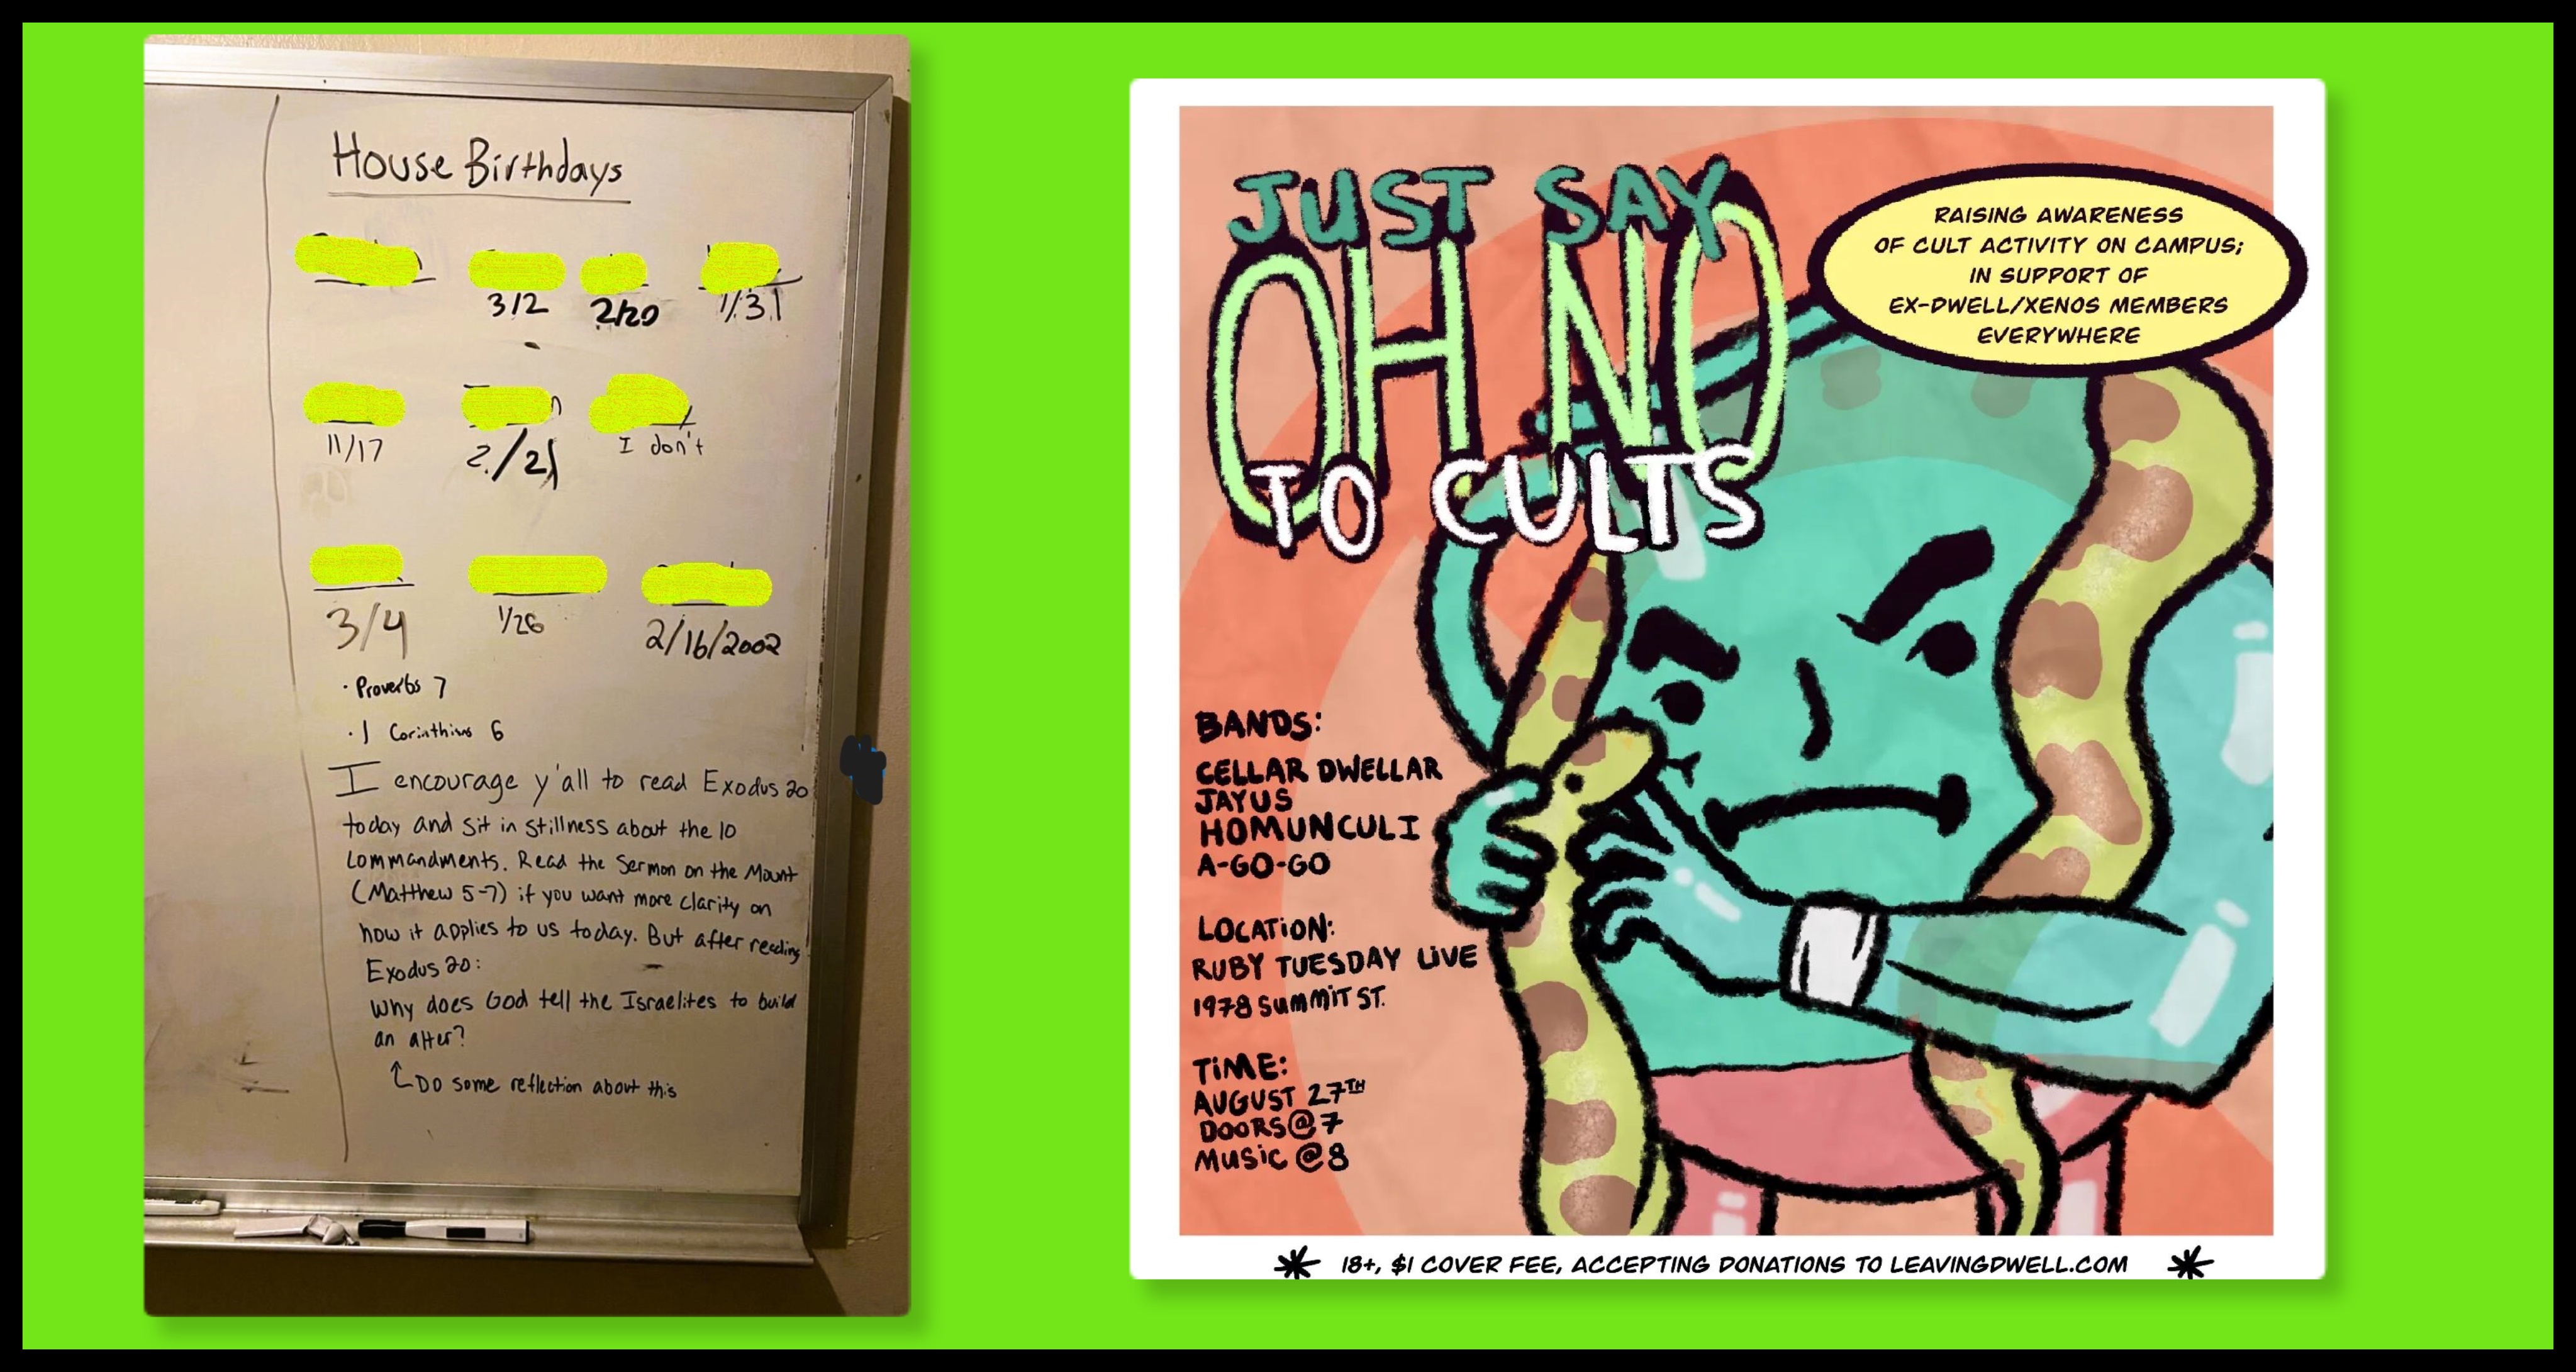 House Birthdays
3/2 2/20 1/31
11/17 2/21 I don't
3/4 1/26 2/16/2002
· Proverbs 7
· 1 Corinthians 6
I encourage y'all to read Exodus 20
today and sit in stillness about the 10
Commandments. Read the Sermon on the Mount
(Matthew 5-7) if you want more clarity on
how it applies to us today. But after reading
Exodus 20:
Why does God tell the Israelites to build
an alter?
Do some reflection about this
JUST SAY
OH NO
TO CULTS
RAISING AWARENESS
OF CULT ACTIVITY ON CAMPUS;
IN SUPPORT OF
EX-DWELL/XENOS MEMBERS
EVERYWHERE
BANDS:
CELLAR DWELLAR
JAYUS
HOMUNCULI
A-GO-GO
LOCATION:
RUBY TUESDAY LIVE
1978 SUMMIT ST.
TIME:
AUGUST 27TH
DOORS@7
MUSIC @8
18+, $1 COVER FEE, ACCEPTING DONATIONS TO LEAVINGDWELL.COM